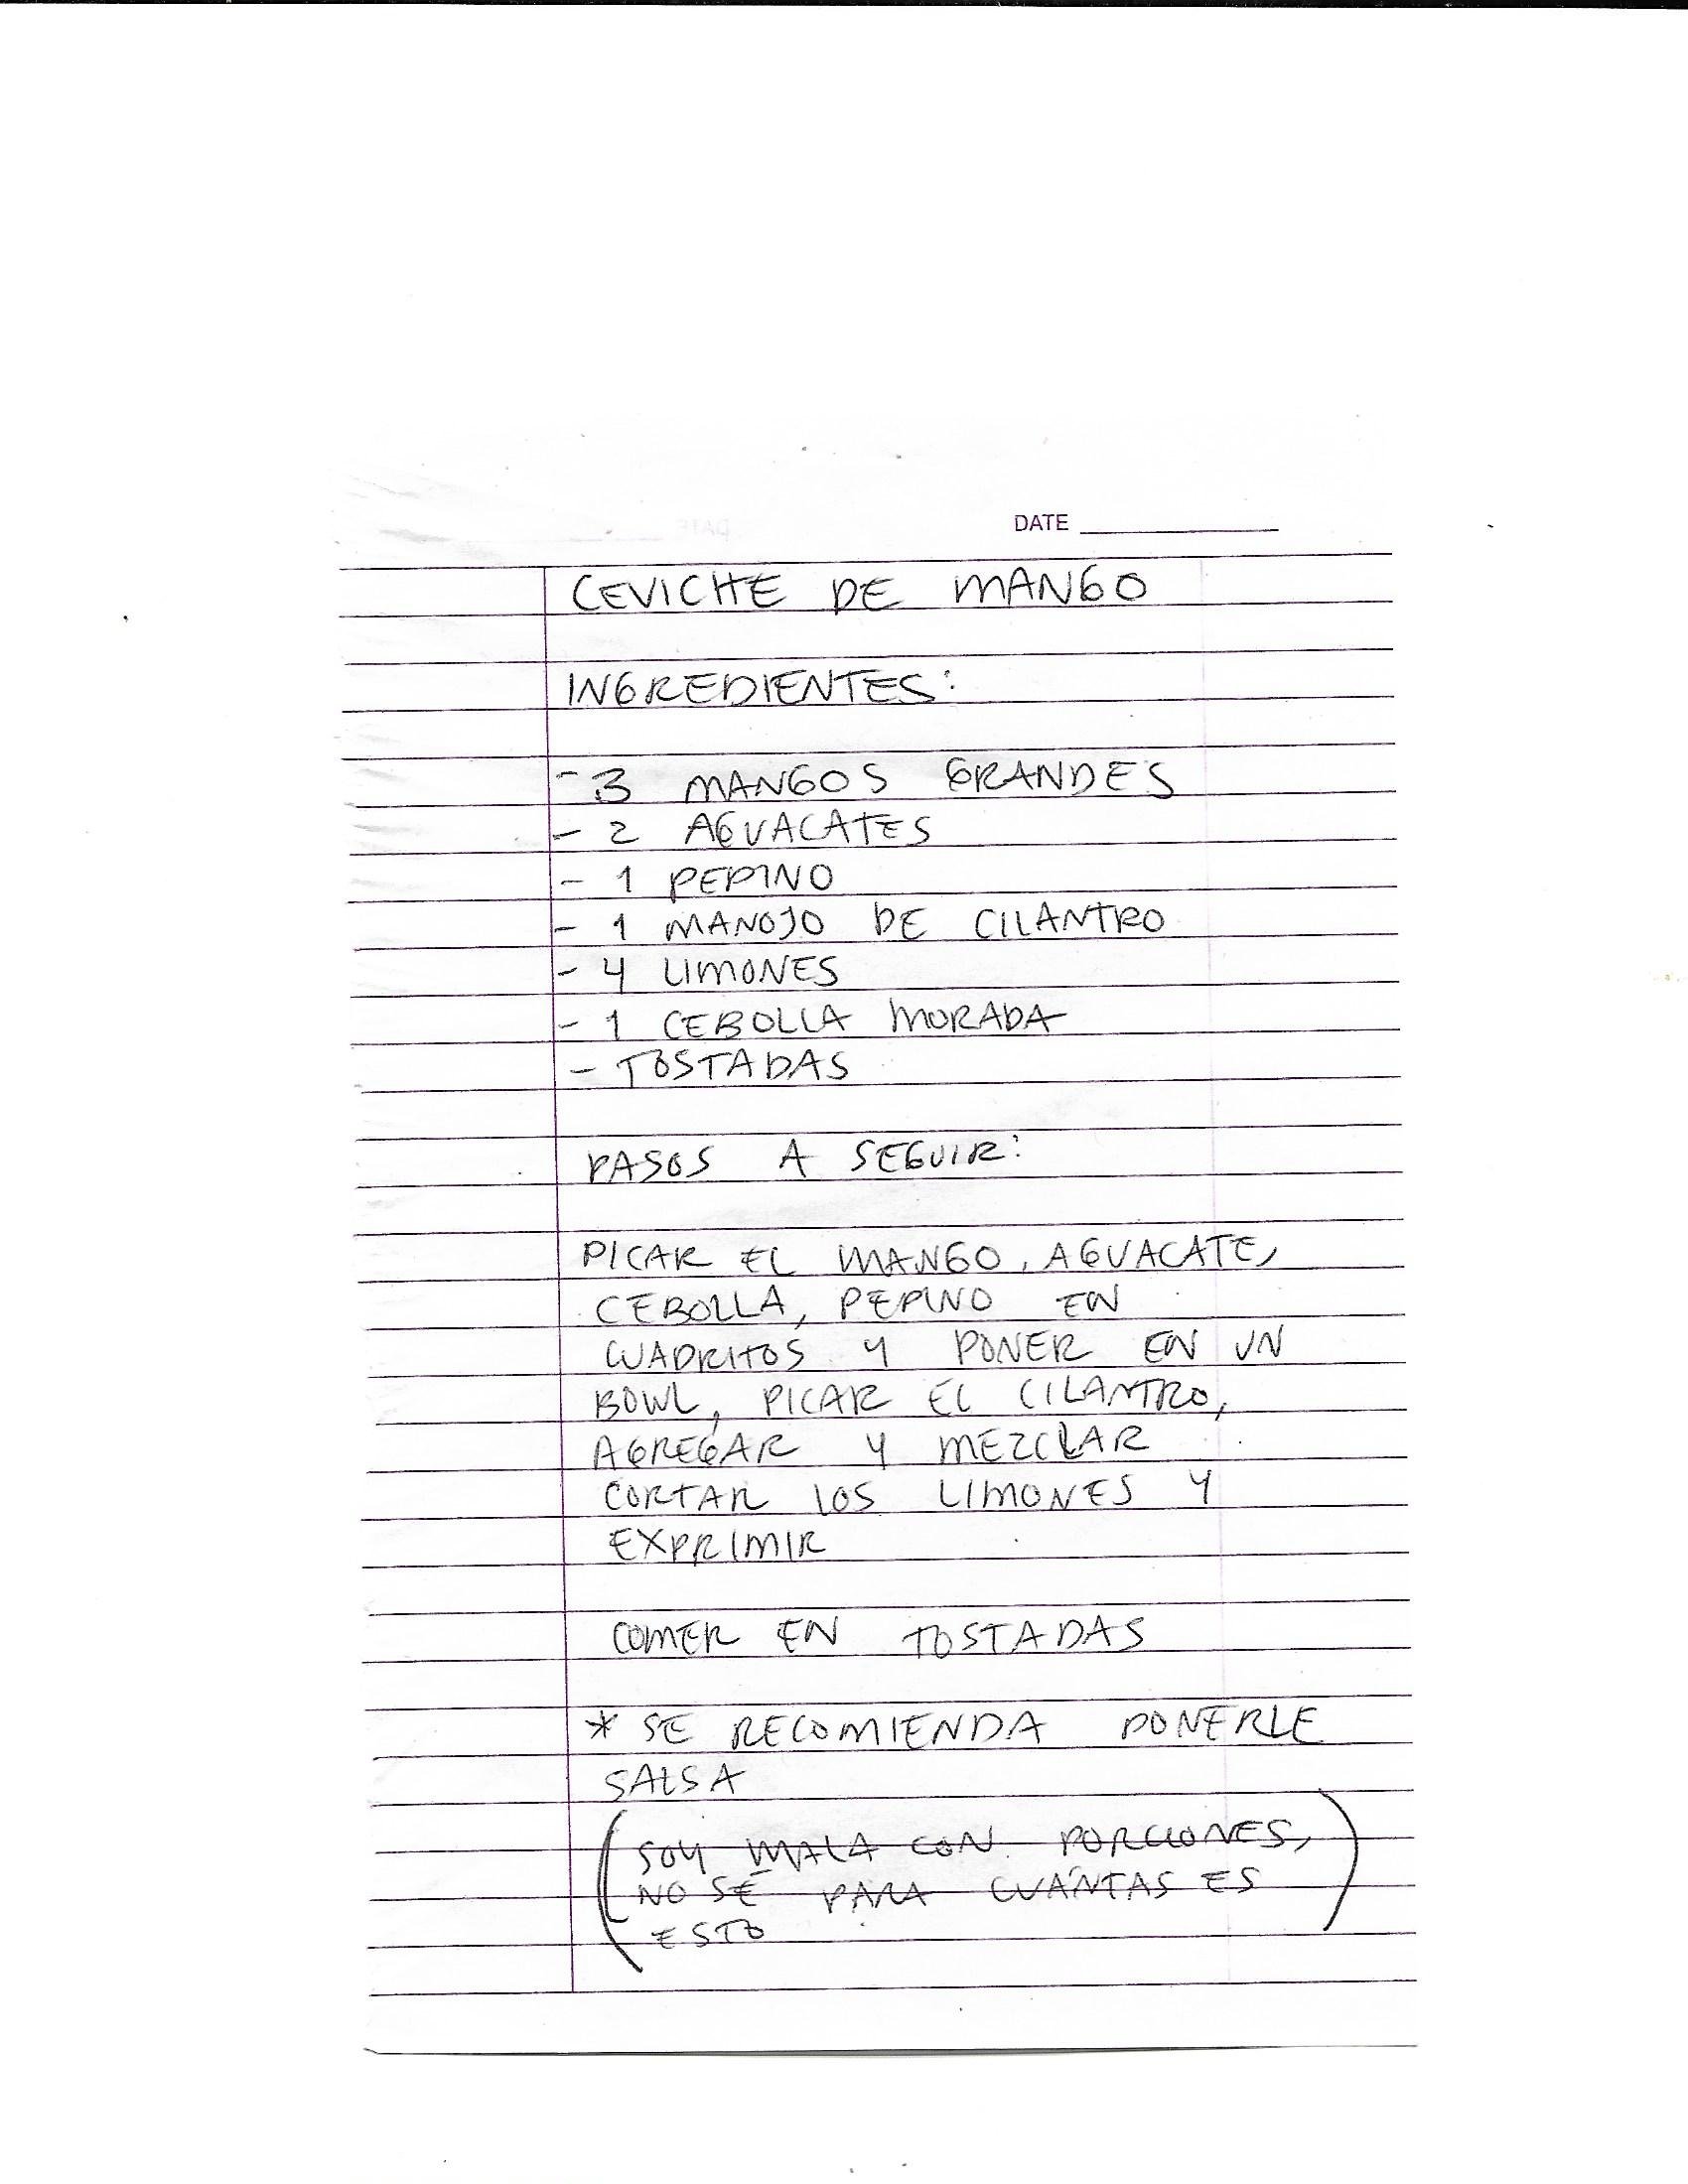 DATE
CEVICHE DE MANGO
INGREDIENTES:
- 3 MANGOS GRANDES
- 2 AGUACATES
- 1 PEPINO
- 1 MANOJO DE CILANTRO
- 4 LIMONES
- 1 CEBOLLA MORADA
- TOSTADAS
PASOS A SEGUIR:
PICAR EL MANGO, AGUACATE,
CEBOLLA, PEPINO EN
CUADRITOS Y PONER EN UN
BOWL, PICAR EL CILANTRO,
AGREGAR Y MEZCLAR
CORTAR LOS LIMONES Y
EXPRIMIR
COMER EN TOSTADAS
* SE RECOMIENDA PONERLE
SALSA
(SOY MALA CON PORCIONES,
NO SÉ PARA CUÁNTAS ES
ESTO)